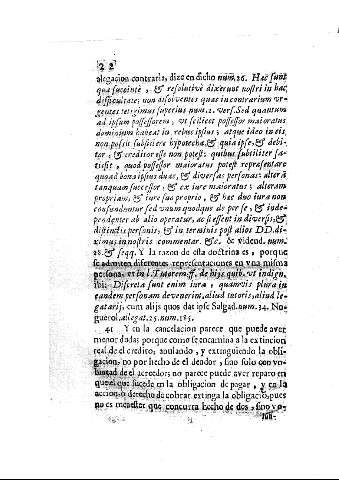 22
alegacion contraria, dize en dicho num. 26. Hæc sunt
quæ succintè, & resolutivè dixerunt nostri in hac
difficultate; non absolventes quas in contrarium ur-
gentes tetigimus superius num. 2. vers. Sed quantum
ad ipsum possessorem, ut scilicet possessor maioratus
dominium habeat in rebus ipsius; atque ideo in eis
non possit subsistere hypotheca, & quia ipse, & debi-
tor, & creditor esse non potest; quibus subtiliter sa-
tisfit, quod possessor maioratus potest repræsentare
quoad bona ipsius duas, & diversas personas: alterã
tanquam successor, & ex iure maioratus; alteram
propriam, & iure suo proprio, & hæc duo iura non
confunduntur sed unumquodque de per se, & inde-
pendenter ab alio operatur, ac si essent in diversis, &
distinctis personis, & in terminis post alios DD. di-
ximus in nostris commentar. &c. & vidend. num.
28. & seqq. Y la razon de esta doctrina es, porque
se admiten diferentes representaciones en vna misma
persona, et in l. Tutorem ff. de his, quib. vt indign.
ibi: Discreta sunt enim iura, quamvis plura in
eandem personam devenerint, aliud tutoris, aliud le-
gatarij, cum alijs quos dat ipse Salgad. num. 34. No-
guerol. allegat. 25. num. 185.
41 Y en la cancelacion parece que puede aver
menor dudas porque como se encamina à la extincion
real de el credito, anulando, y extinguiendo la obli-
gacion, no por hecho de el deudor, sino solo con vo-
luntad de el acreedor; no parece puede aver reparo en
que el que sucede en la obligacion de pagar, y en la
accion, ò derecho de cobrar extinga la obligacio; pues
no es menester que concurra hecho de dos, sino v-